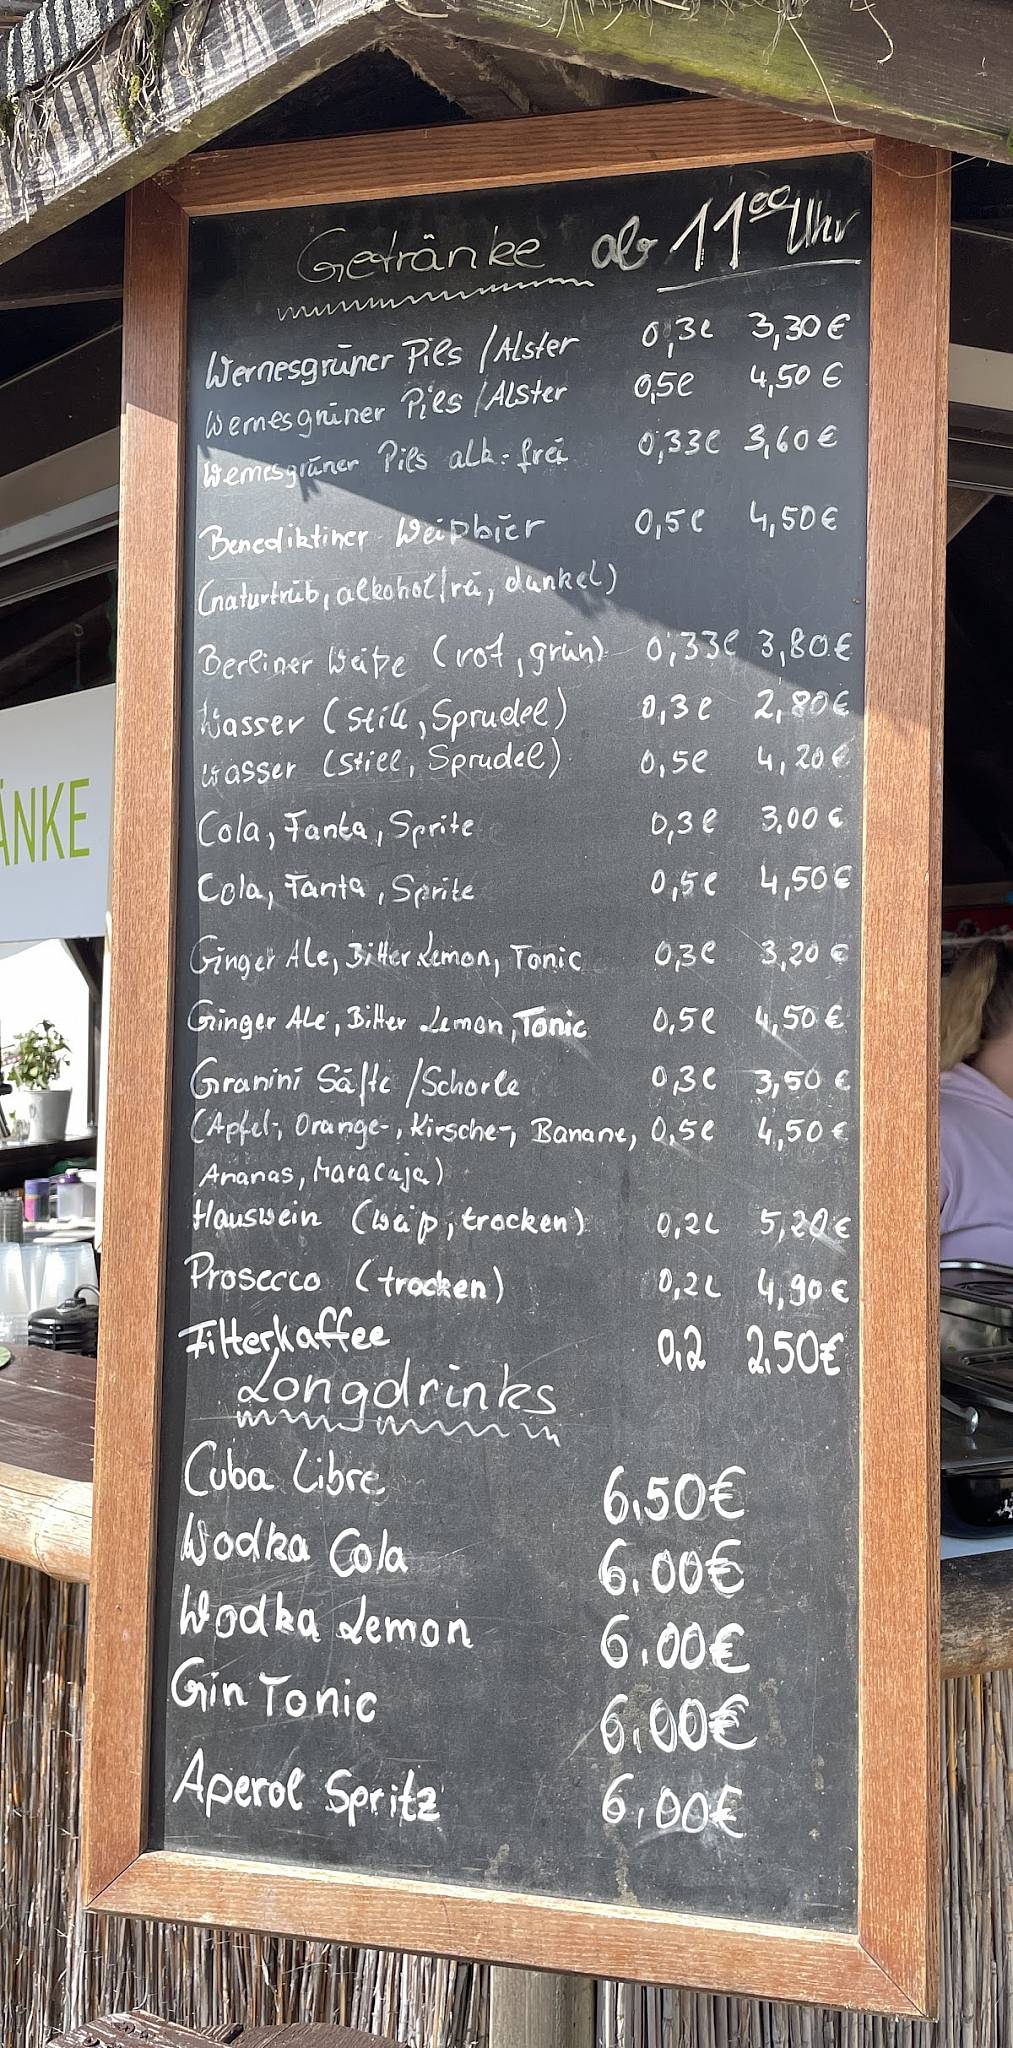 Getränke ab 11⁰⁰ Uhr
Wernesgrüner Pils / Alster 0,3l 3,30€
Wernesgrüner Pils / Alster 0,5l 4,50€
Wernesgrüner Pils alk. frei 0,33l 3,60€
Benediktiner Weißbier 0,5l 4,50€
(naturtrüb, alkoholfrei, dunkel)
Berliner Weiße (rot, grün) 0,33l 3,80€
Wasser (Still, Sprudel) 0,3l 2,80€
Wasser (Still, Sprudel) 0,5l 4,20€
ÄNKE
Cola, Fanta, Sprite 0,3l 3,00€
Cola, Fanta, Sprite 0,5l 4,50€
Ginger Ale, Bitter Lemon, Tonic 0,3l 3,20€
Ginger Ale, Bitter Lemon, Tonic 0,5l 4,50€
Granini Säfte / Schorle 0,3l 3,50€
(Apfel-, Orange-, Kirsche-, Banane, 0,5l 4,50€
Ananas, Maracuja)
Hauswein (weiß, trocken) 0,2l 5,20€
Prosecco (trocken) 0,2l 4,90€
Filterkaffee 0,2 2.50€
Longdrinks
Cuba Libre 6,50€
Wodka Cola 6.00€
Wodka Lemon 6.00€
Gin Tonic 6,00€
Aperol Spritz 6,00€